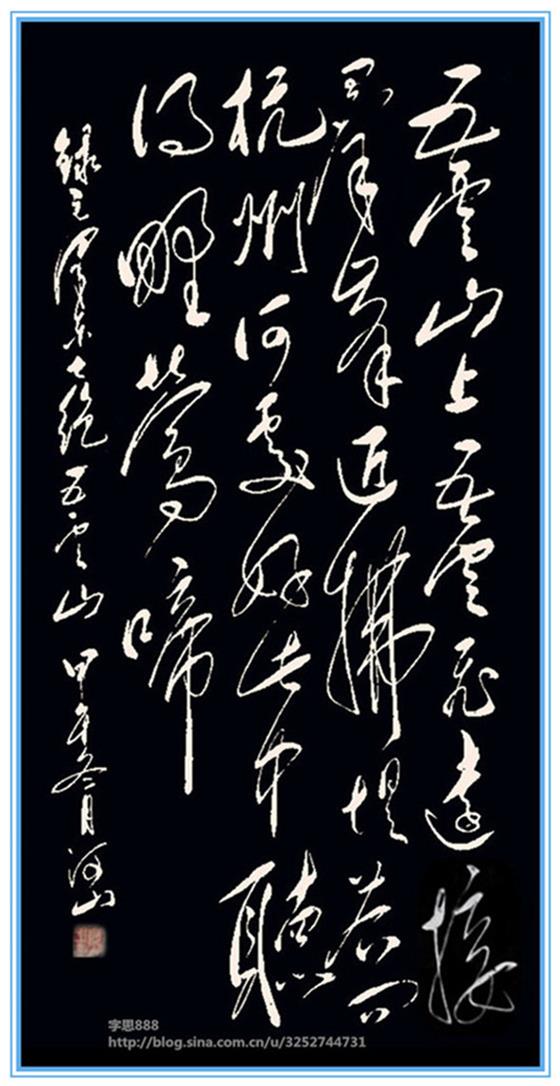 五雲山上五雲飛遠接
羣峰近拂堤若问
杭州何處好此中聽
得野鶯啼
録毛澤东七绝五雲山 甲午冬月 河山
字思888
http://blog.sina.com.cn/u/3252744731